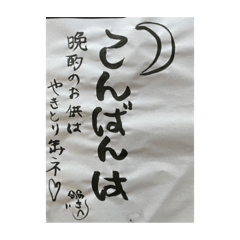 こんばんは
晩酌のお供は
やきとり缶ネ♡